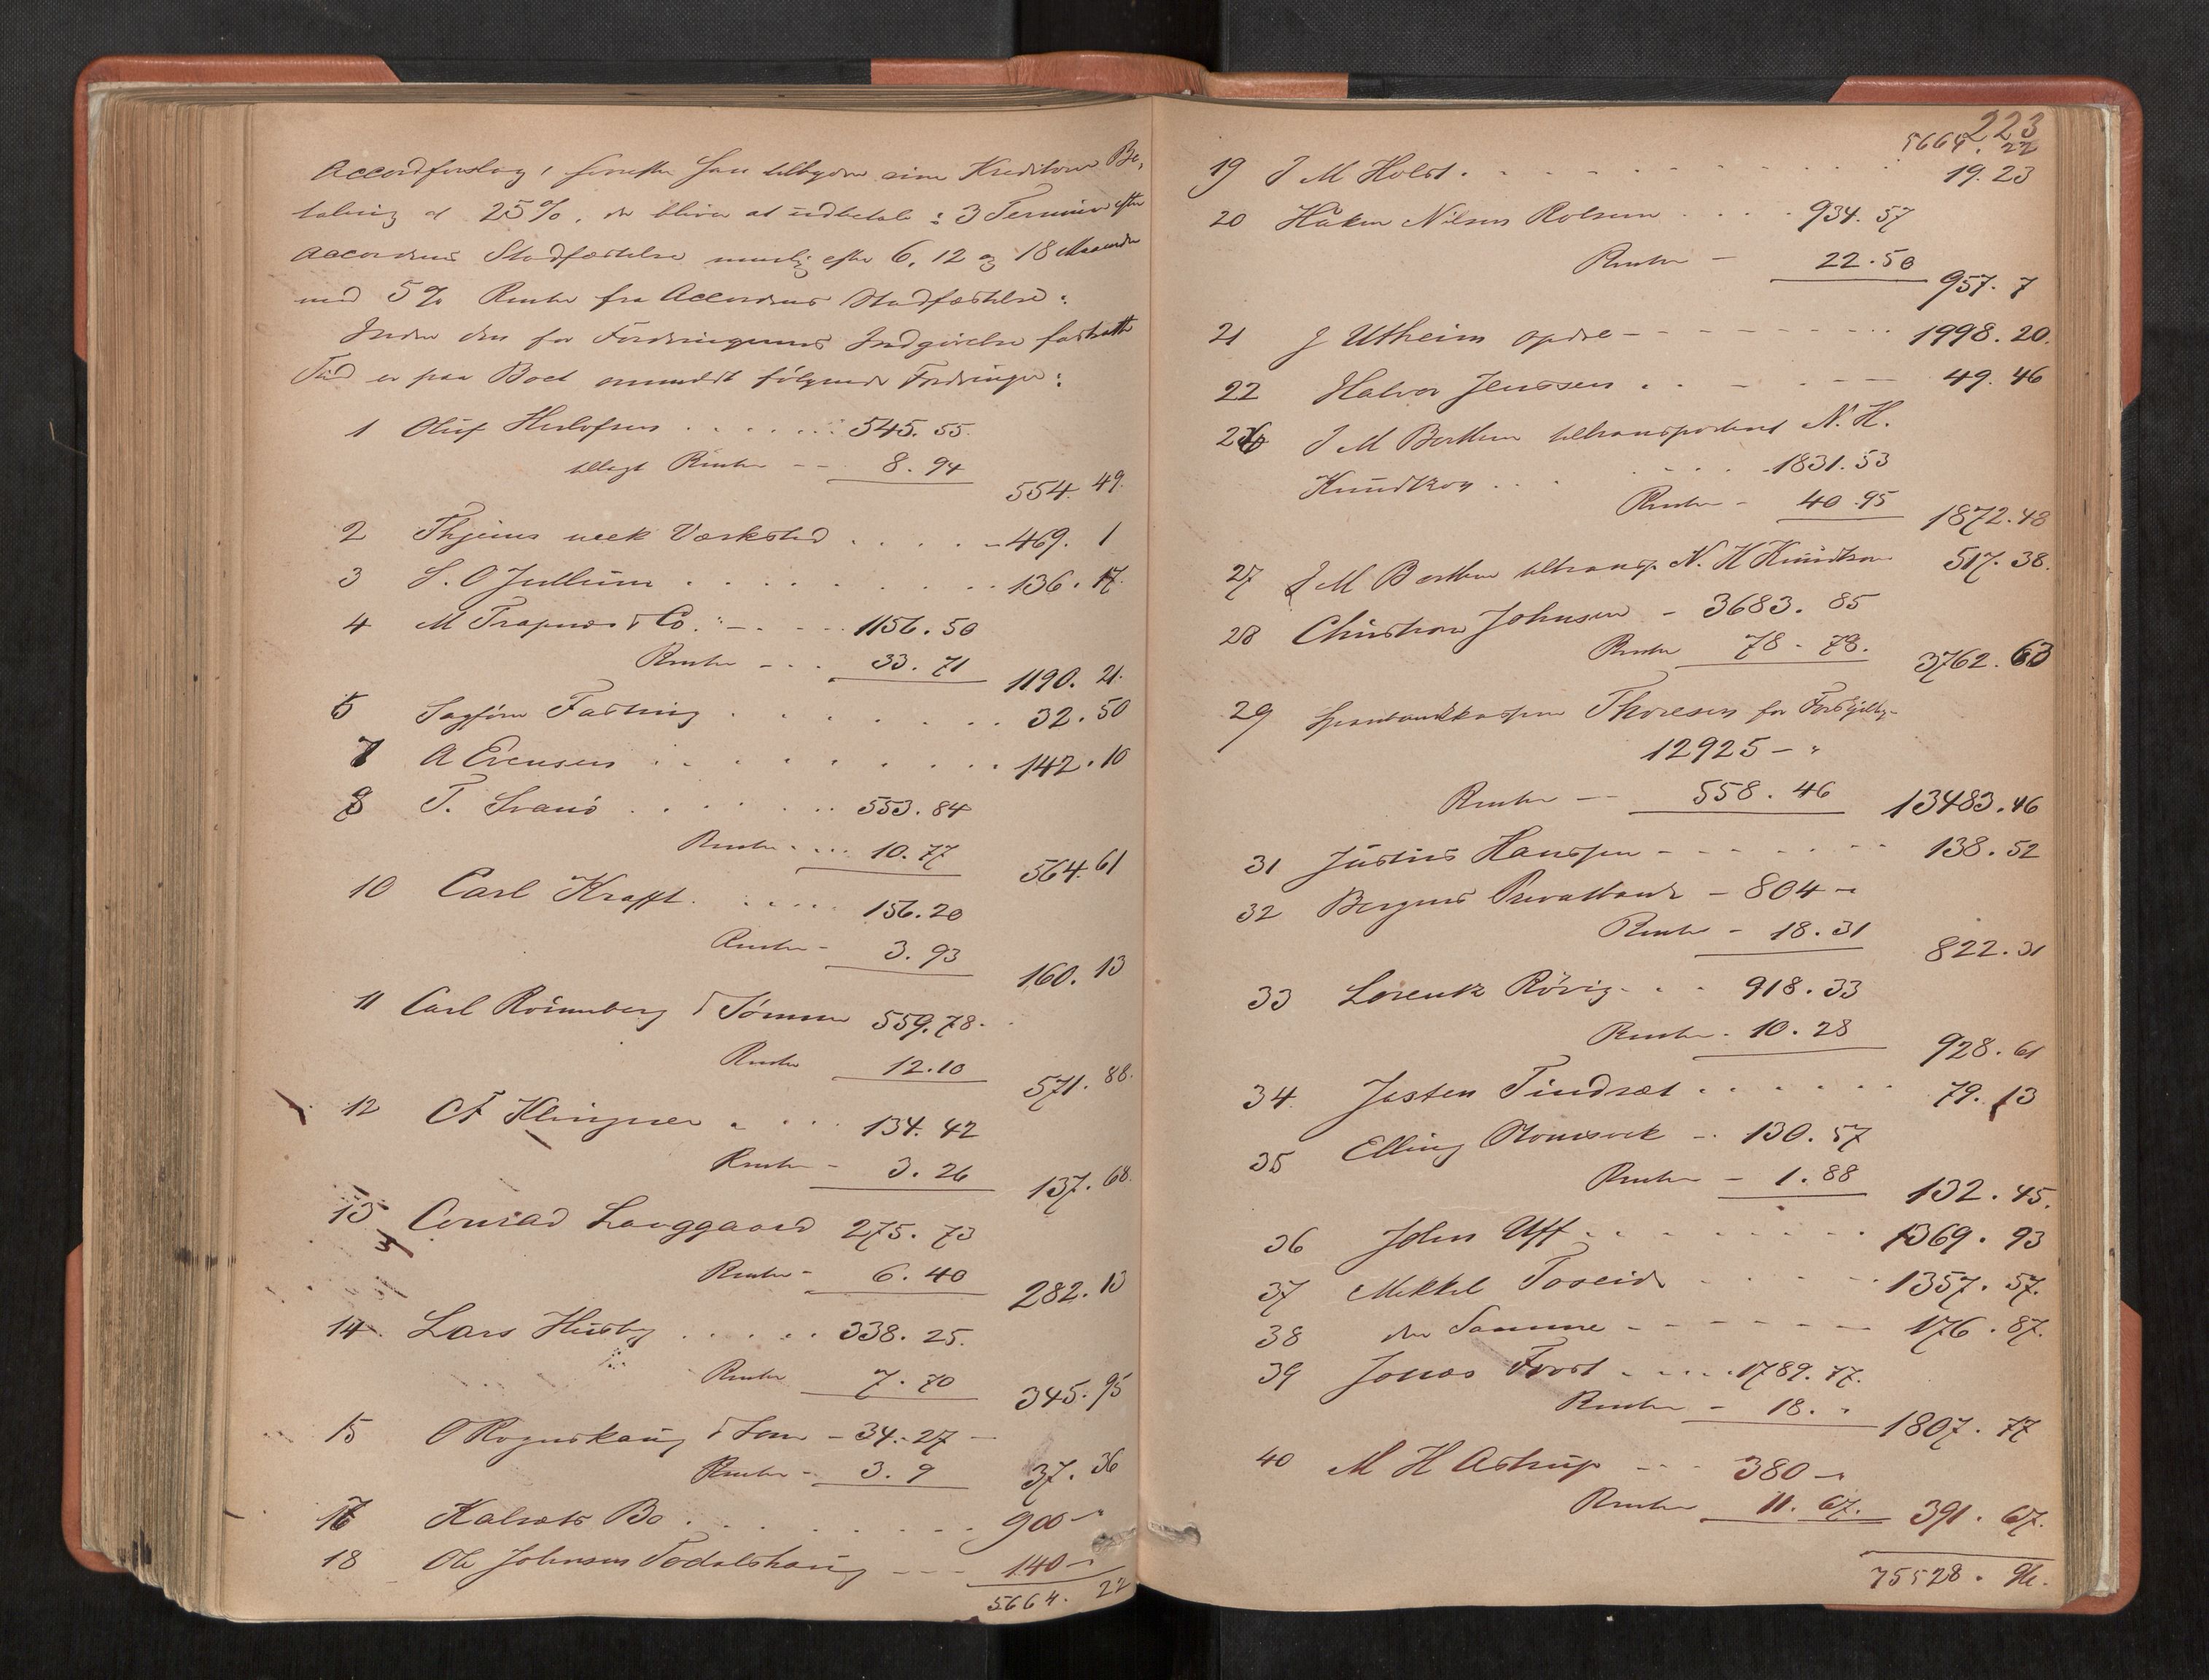 Accordforslag, hvorefter han tilbyder sine Kreditorer Be-
taling af 25%, der bliver at udbetale i 3 Terminer efter
Accordens Stadfæstelse nemlig efter 6, 12 og 18 Maaneder
med 5% Renter fra Accordens Stadfæstelse.
Inden den for Fordringernes Indgivelse fastsatte
Tid er paa Boet anmeldt følgende Fordringer:
1 Oluf Herlofsen . . . . . . 545. 55.
tillagt Renter - - 8. 94
554. 49.
2 Thjems mek Værksted . . . . - 469. 1
3 S. O Jullum . . . . . . . . 136. 17.
4 M Trapnæs & Co. - . . - 1156. 50
Renter - - . 33. 71
1190. 21.
5 Sagfører Fasting . . . . . . . 32. 50
7 A Evensen . . . . . . . . . 142. 10
8 T. Svanø . . . . . . 553. 84
Renter . ... 10. 77
564. 61
10 Carl Krafft . . . . . 156. 20
Renter - 3. 93
160. 13
11 Carl Rønneberg & Sønner 559. 78.
Renter 12. 10
571. 88.
12 C F Klingner . . . . 134. 42
Renter - 3. 26
137. 68.
13 Conrad Langgaard 275. 73
Renter - 6. 40
282. 13
14 Lars Huseby . . . . . 338. 25.
Renter 7. 70
345. 95
15 O Rognskaug & Søn - 34. 27 -
Renter - 3. 9
37. 36
16 Kalsets Bo . . . . . . . . 900 - "
18 Ole Johnsen Todalshaug - - - 140 - "
5664. 22
223
5664. 22
19 J M Holst . - - - - - - - - 19. 23
20 Håken Nilsen Rolsem . . . . 934. 57
Renter - 22. 50
957. 7
21 J Utheim opdre - - - - - - - - - 1998. 20.
22 Halvor Jenssen . . - - - - 49. 46
26 J M Berthen tiltransporteret N. H.
Knudtzon . . . . . . 1831. 53
Renter - 40. 95
1872. 48
27 J M Berthen tiltransp. N. H Knudtzon 517. 38.
28 Christian Johnsen - 3683. 85
Renter 78. 78.
3762. 63
29 Thoresen for
12925 - "
Renter - - 558. 46 13483. 46
31 Justus Hanssen - - - - - - - - 138. 52
32 Bergens Privatbank - 804 - "
Renter - 18. 31
822. 31
33 Lorentz Rövig - . - 918. 33
Renter - 10. 28
928. 61
34 Josten Tindsæt . . . . . . 79. 13
35 Elling - . 130. 57
Renter - 1. 88 132. 45.
36 John Uff . . . . . . . . . 1369. 93
37 Mikkel Foseide - . . - . 1357. 57.
38 den Samme - - - - - - - 176. 87.
39 Jonas Frost - . . . . 1789. 77.
Renter - 18. " 1807. 77
40 M H Astrup - - - 380 - "
Renter 11. 67. 391. 67.
75528. 96.